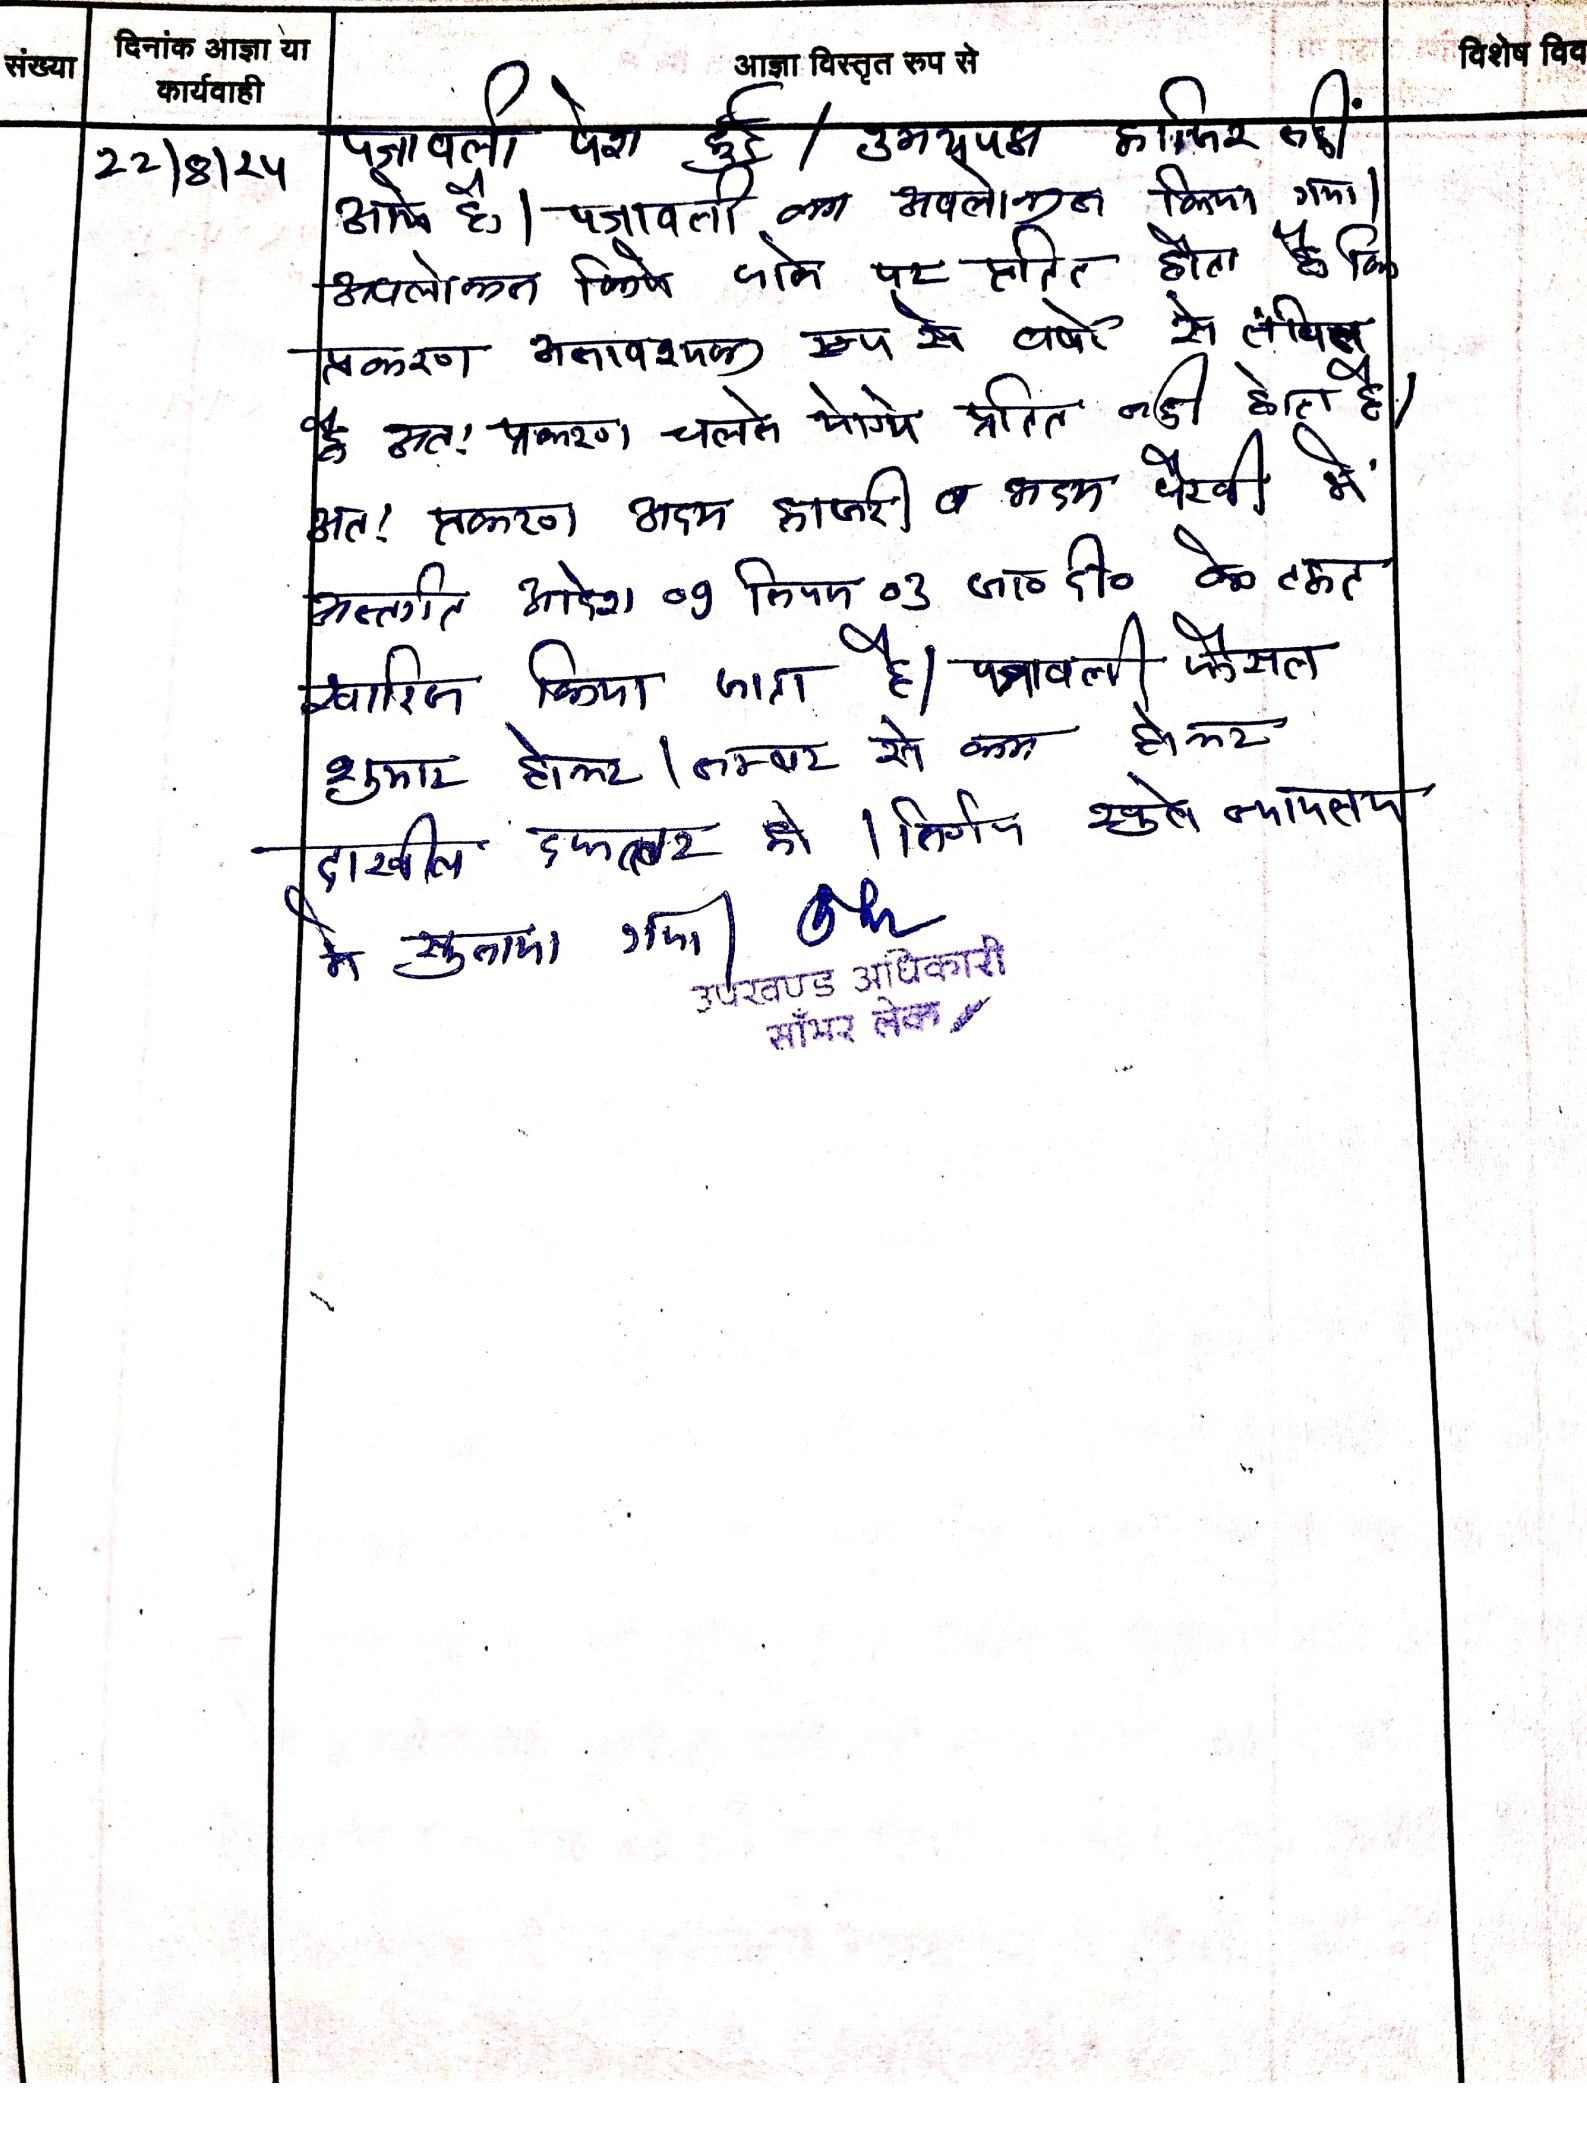 संख्या
दिनांक आज्ञा या
कार्यवाही
आज्ञा विस्तृत रूप से
विशेष विव
22/8/24
पत्रावली पेश हुई / उभयपक्ष हाजिर नहीं
आये है। पत्रावली का अवलोकन किया गया।
अवलोकन किये जाने पर प्रतित होता है कि
प्रकरण अनावश्यक रूप से वर्षो से लंबित
है अत: प्रकरण चलने योग्य प्रतित नही होता है।
अत: प्रकरण अदम हाजरी व अदम पैरवी में
अन्तर्गत आदेश 09 नियम 03 जा० दी० के तहत
खारिज किया जाता है। पत्रावली फैसल
शुमार होकर। नम्बर से कम होकर
दाखील दफ्तर हो । निर्णय खुले न्यायलय
मे सुनाया गया।
उपखण्ड अधिकारी
साँभर लेक